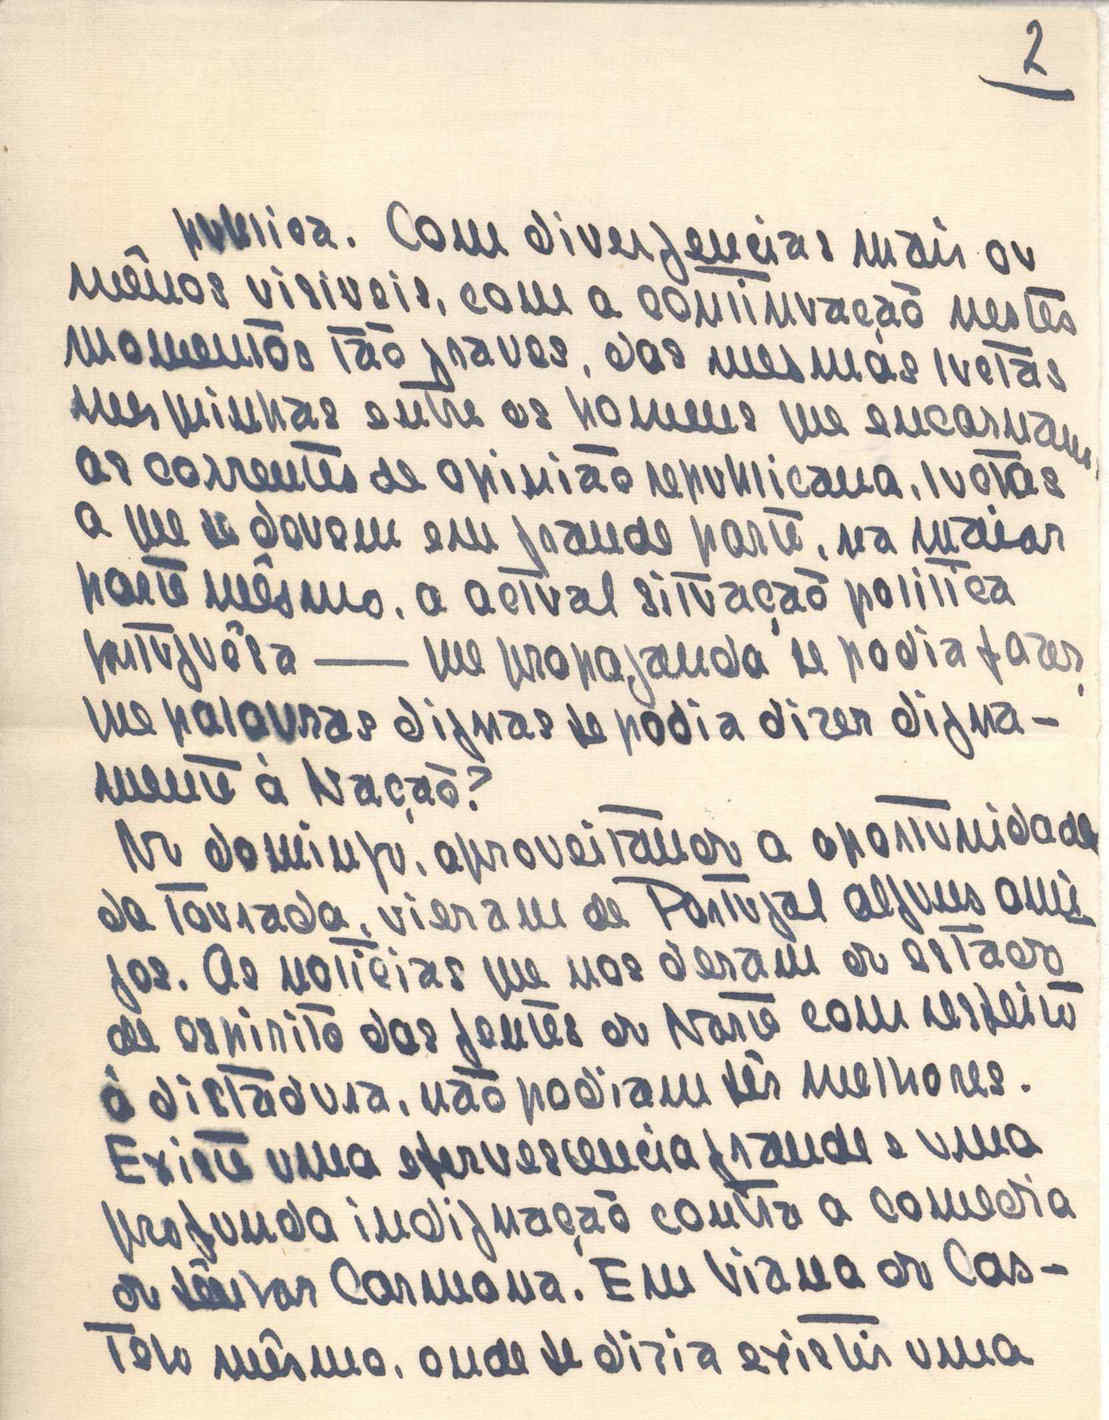 2
publica. Com divergencias mais ou
mênos visiveis, com a continuação nestes
momentos tão graves, das mesmas lutas
mesquinhas entre os homens que encarnam
as correntes de opinião republicana, lutas
a que se devem em grande parte, na maior
parte mêsmo, a actual situação politica
portuguêsa — que propaganda se podia fazer,
que palavras dignas se podia dizer digna-
mente à Nação?
No domingo, aproveitando a oportunidade
da tourada, vieram de Portugal alguns ami-
gos. As noticias que nos deram do estado
de espirito das gentes do Norte com respeito
à dictadura, não podiam sêr melhores.
Existe uma efervescencia grande e uma
profunda indignação contra a comedia
do senhor Carmona. Em Viana do Cas-
telo mêsmo, onde se dizia existir uma